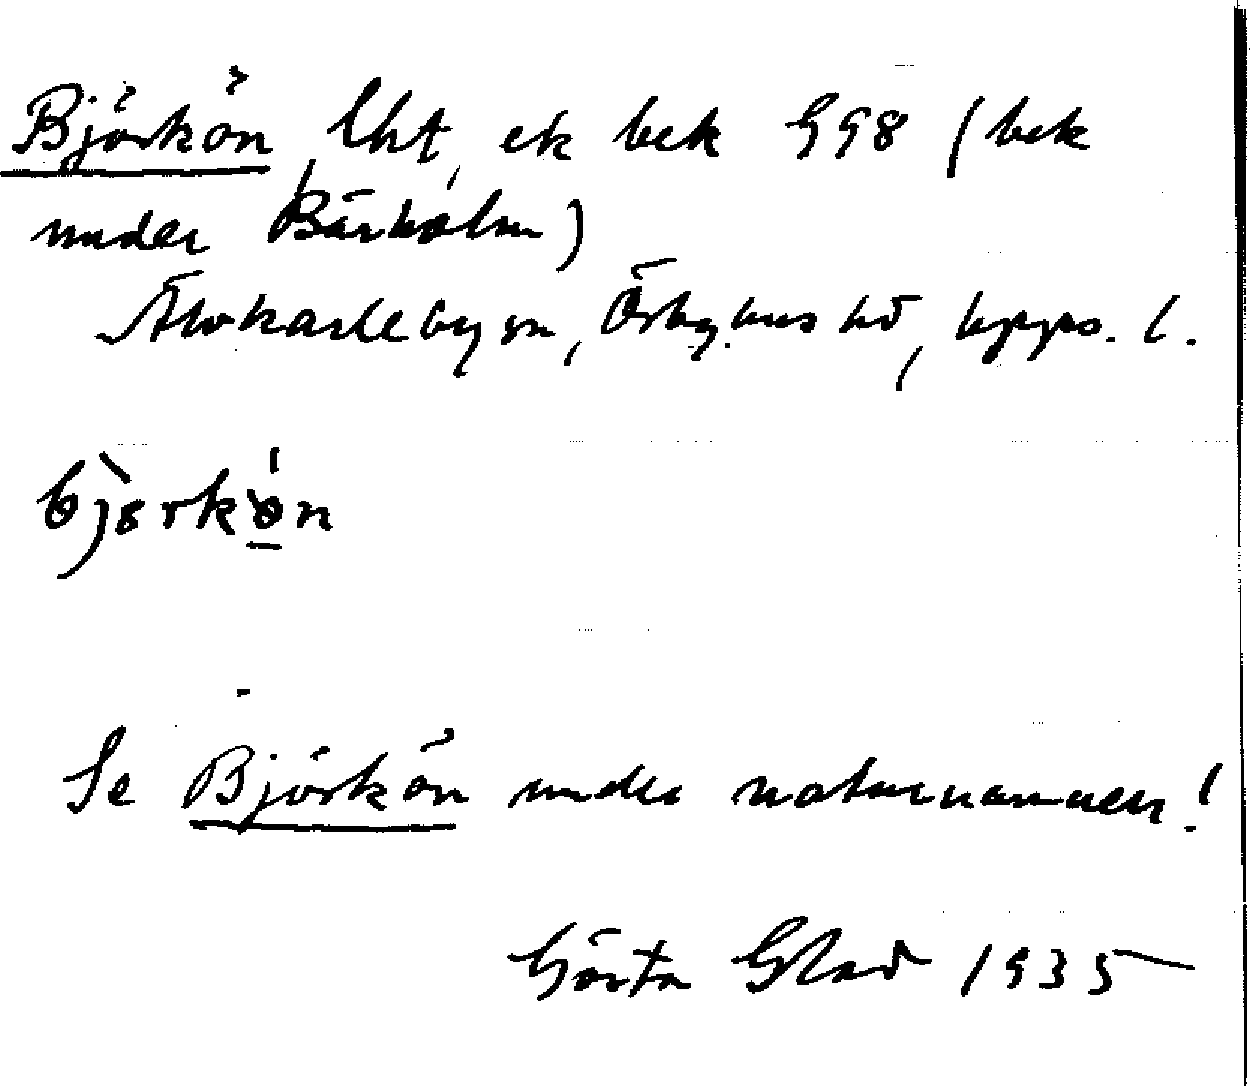 Björkön, lht, ek bek 998 (bek
under Bärholm)
Älvkarleby sn, Örbyhus hd, Upps. l.
bjørkøn
Se Björkön under naturnamnen!
Gösta Glad 1935